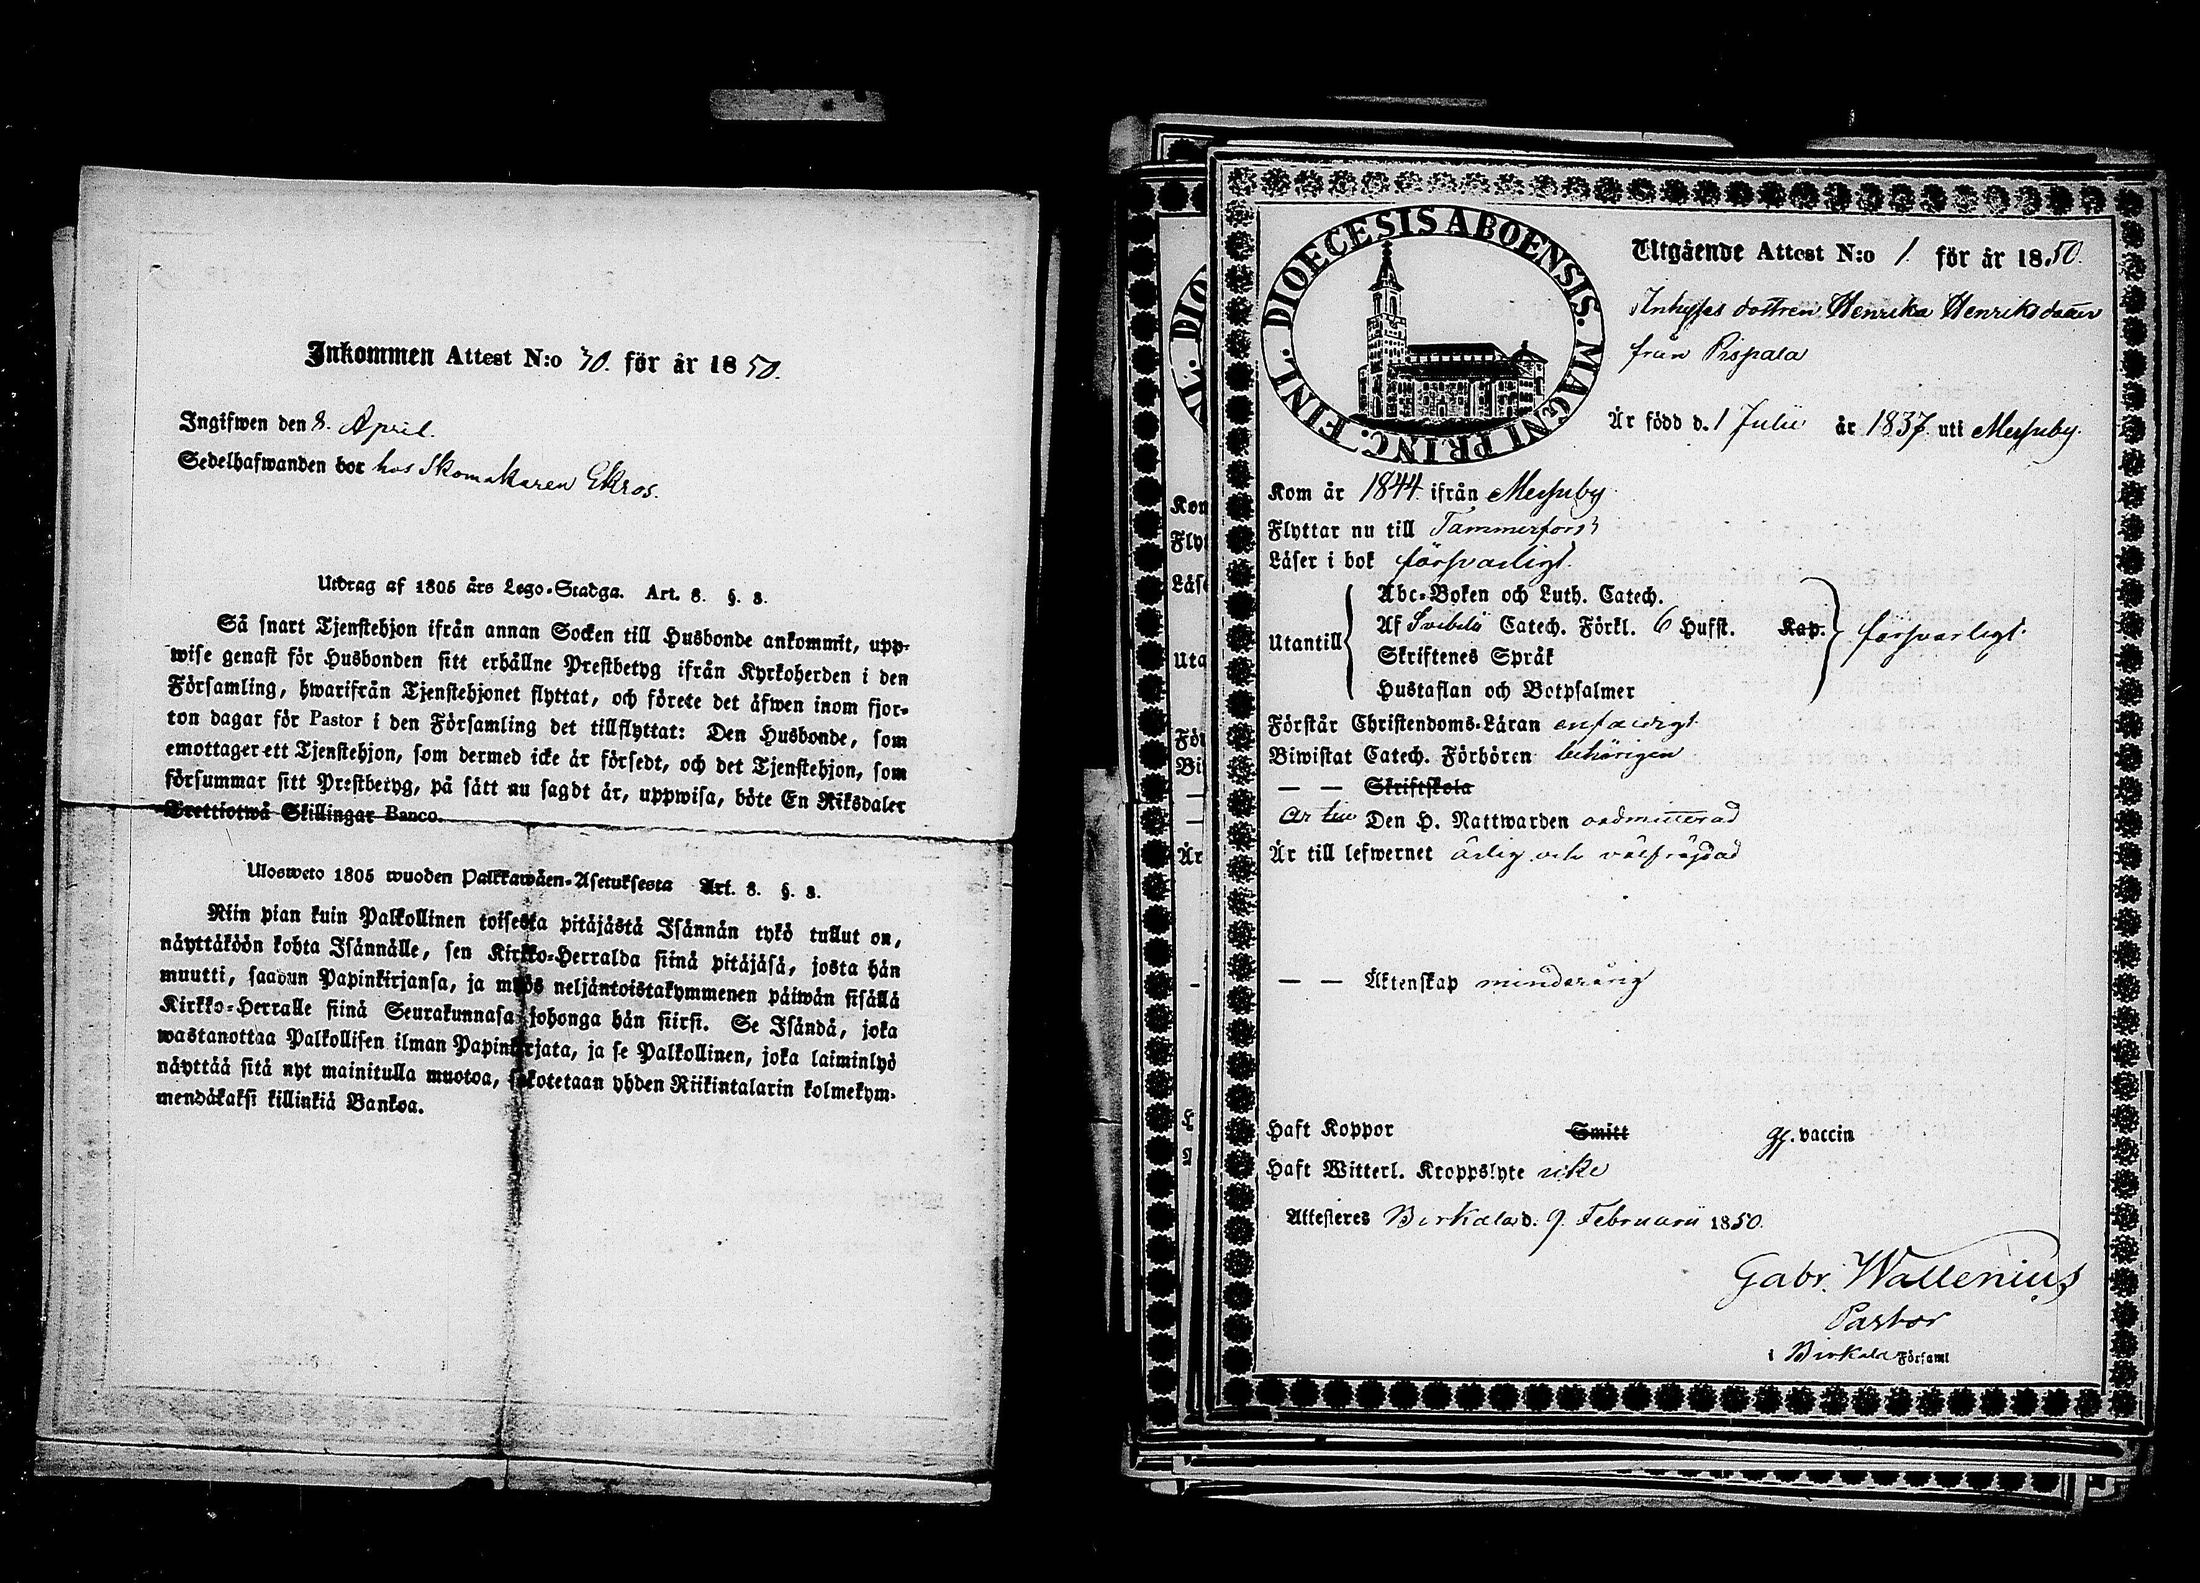 Inkommen Attest N:o 70. för år 1850.
Ingifwen den 8. April.
Sedelhafwanden bor hos Skomakaren Ekros.
Utdrag af 1805 års Lego-Stadga. Art. 8. §. 3.
Så snart Tjenstehjon ifrån annan Socken till Husbonde ankommit, upp-
wise genast för Husbonden sitt erhållne Prestbetyg ifrån Kyrkoherden i den
Församling, hwarifrån Tjenstehjonet flyttat, och förete det äfwen inom fjor-
ton dagar för Pastor i den Församling det tillflyttat: Den Husbonde, som
emottager ett Tjenstehjon, som dermed icke är försedt, och det Tjenstehjon, som
försummar sitt Prestbetyg, på sätt nu sagdt är, uppwisa, böte En Riksdaler
Trettiotwå Skillingar Banco.
Ulosweto 1805 wuoden Palkkawäen-Asetuksesta Art. 8. §. 3.
Niin pian kuin Palkollinen toisesta pitäjästä Isännän tykö tullut on,
näyttäköön kohta Isännälle, sen Kirkko-Herralda siinä pitäjäsä, josta hän
muutti, saadun Papinkirjansa, ja myös neljäntoistakymmenen päiwän sisällä
Kirkko-Herralle siinä Seurakunnasa johonga hän siirsi. Se Isändä, joka
wastanottaa Palkollisen ilman Papinkirjata, ja se Palkollinen, joka laiminlyö
näyttää sitä nyt mainitulla muotoa, sakotetaan yhden Riikintalarin kolmekym-
mendäkaksi killinkiä Bankoa.
DIOECESIS ABOENSIS. MAGNI PRINC. FINL.
Utgående Attest N:o 1 för år 1850.
Inhyses dottren Henrika Henriksdotter
från Pispala
Är född d. 1 Julii år 1837 uti Messuby.
Kom år 1844 ifrån Messuby
Flyttar nu till Tammerfors
Läser i bok försvarligt.
Utantill
Abc-Boken och Luth. Catech.
Af Svebilii Catech. Förkl. 6 Hufst. Kap.
Skriftenes Språk
Hustaflan och Botpsalmer
försvarligt.
Förstår Christendoms-Läran enfaldigt
Biwistat Catech. Förhören behörigen
— — Skriftskola
Den H. Nattwarden oadmitterad
Är till lefwernet ärlig och välfräjdad
— — Äktenskap minderårig
Haft Koppor Smitt gf. vaccin
Haft Witterl. Kroppslyte icke
Attesteres Birkala d. 9 Februarii 1850.
Gabr. Wallenius
Pastor
i Birkala Församl